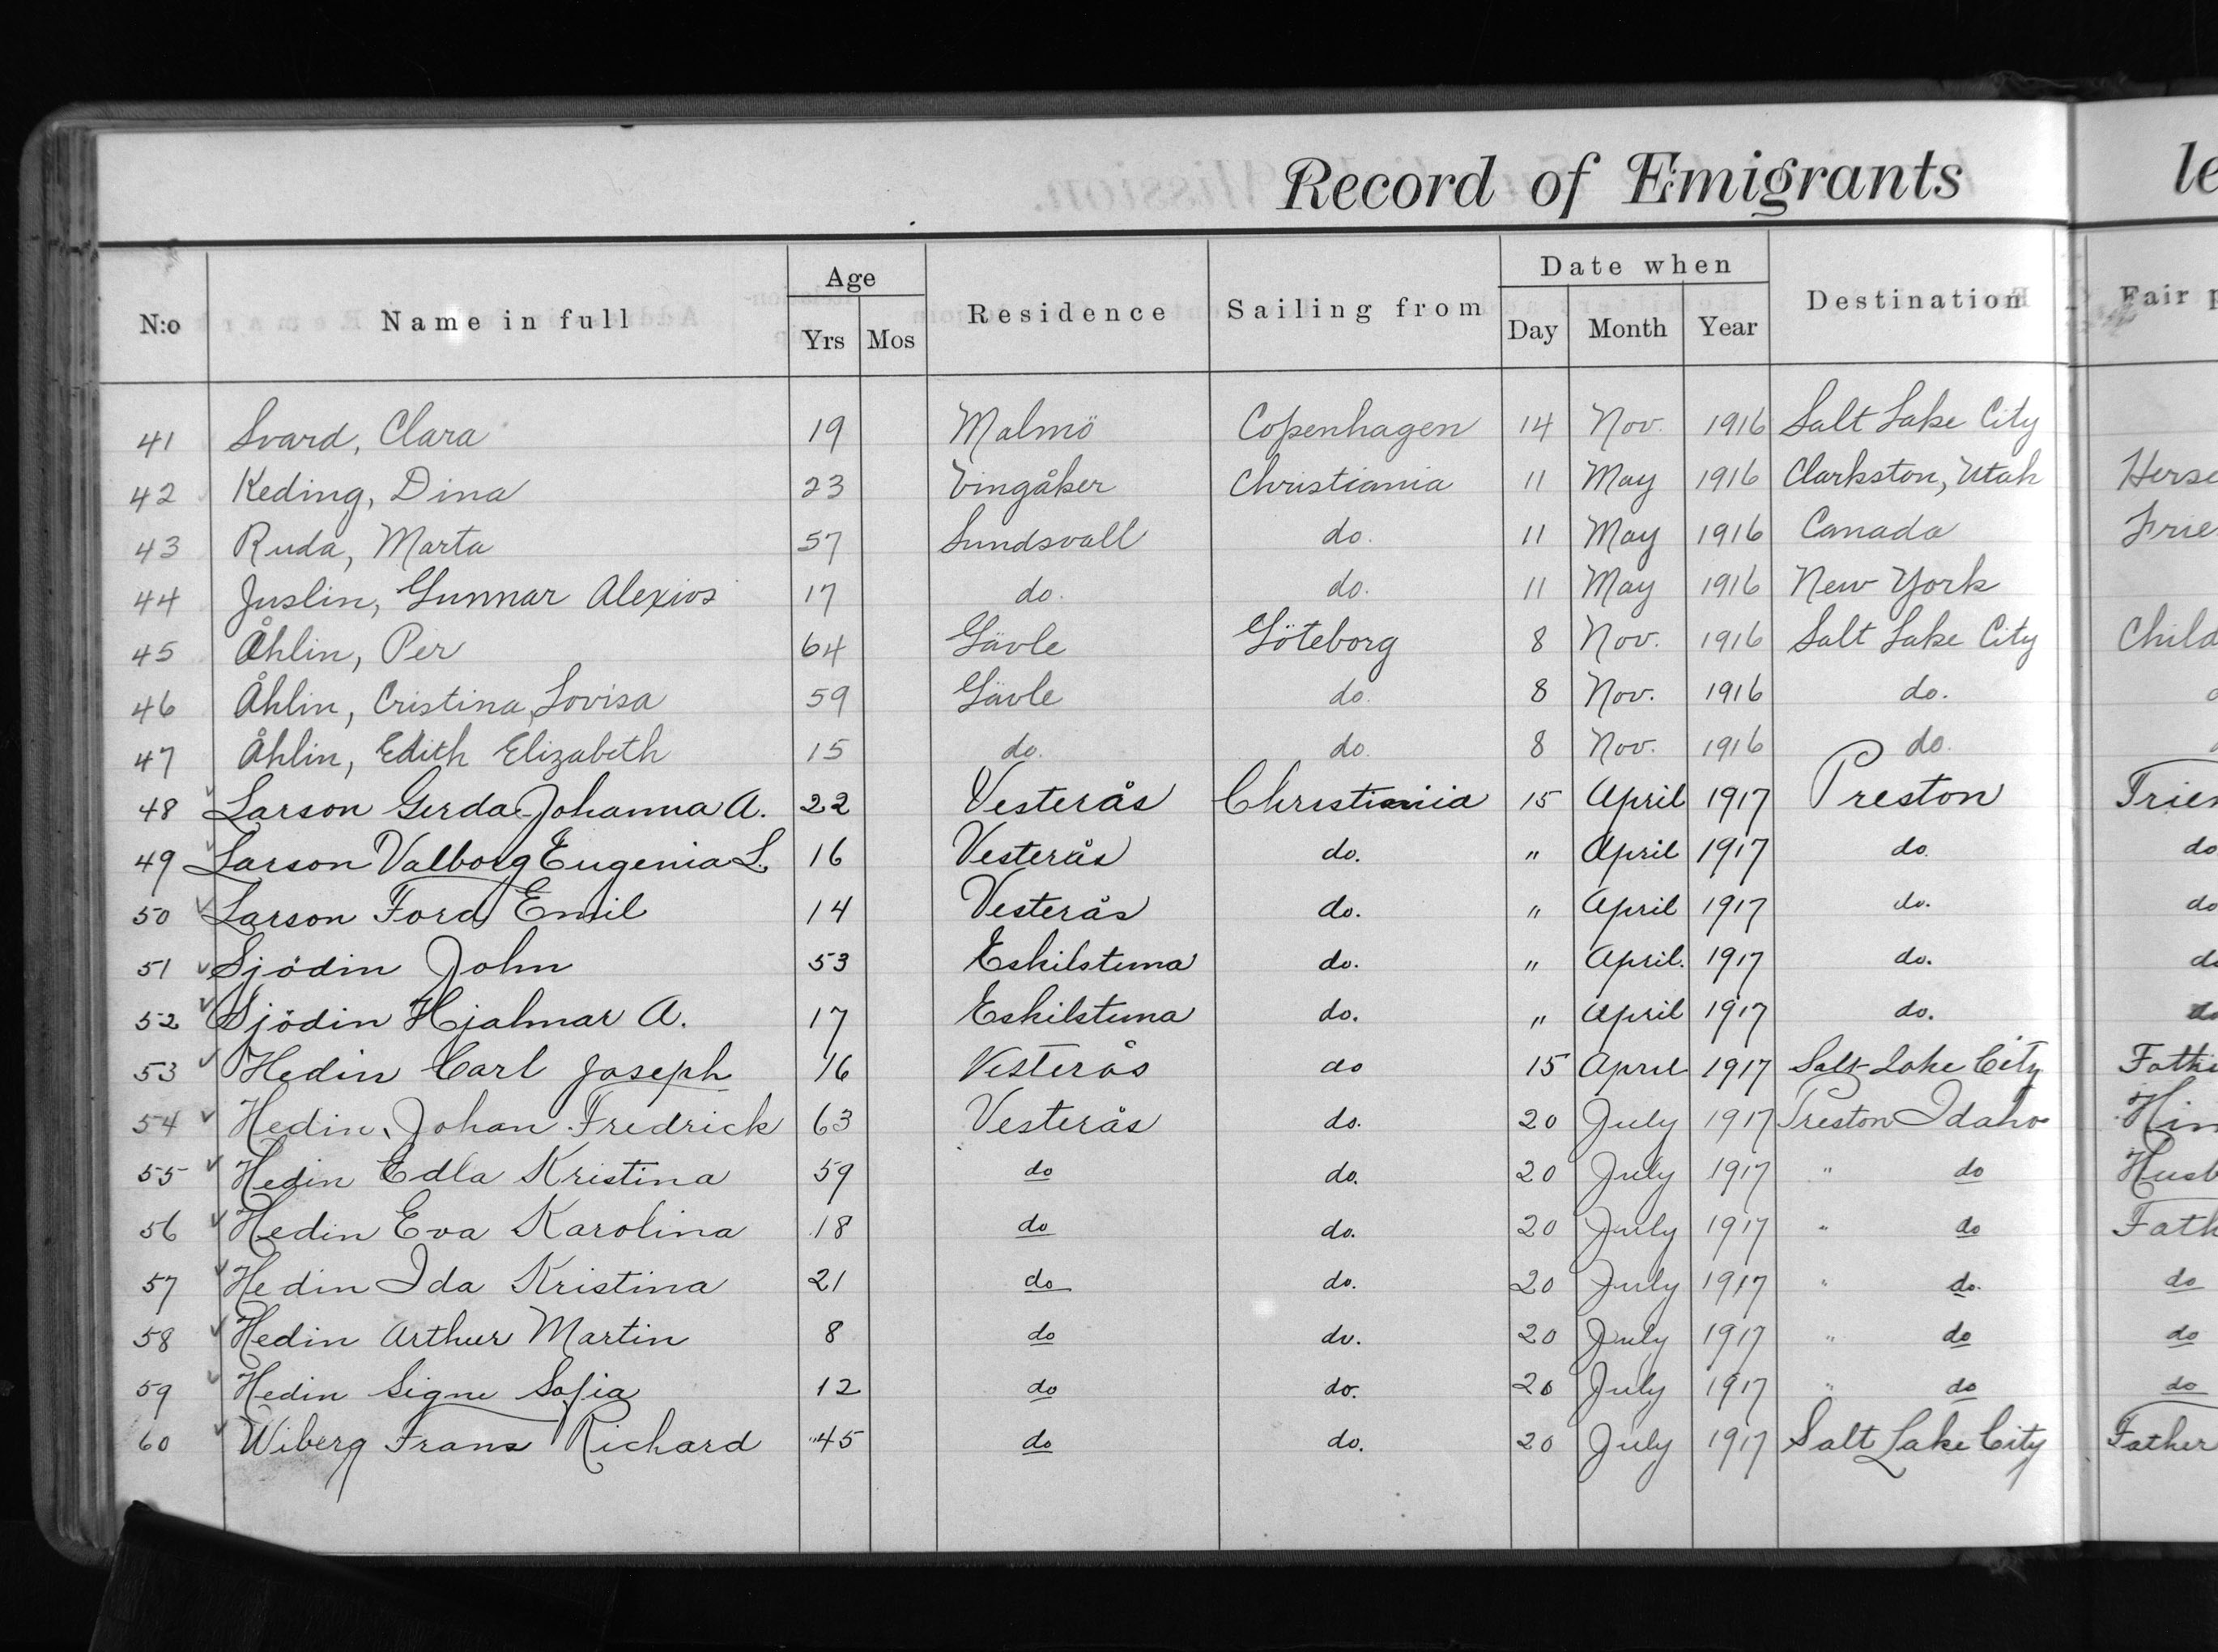 Record of Emigrants le
N:o Name in full Age Yrs Mos Residence Sailing from Date when Day Month Year Destination Fair p
41 Svard, Clara 19 Malmö Copenhagen 14 Nov. 1916 Salt Lake City
42 Keding, Dina 23 Vingåker Christiania 11 May 1916 Clarkston, Utah Herse
43 Ruda, Marta 57 Sundsvall do. 11 May 1916 Canada Frie
44 Juslin, Gunnar Alexios 17 do. do. 11 May 1916 New York
45 Åhlin, Per 64 Gävle Göteborg 8 Nov. 1916 Salt Lake City Child
46 Åhlin, Cristina Lovisa 59 Gävle do. 8 Nov. 1916 do.
47 Åhlin, Edith Elizabeth 15 do. do. 8 Nov. 1916 do.
48 Larson Gerda Johanna A. 22 Vesterås Christiania 15 April 1917 Preston Frien
49 Larson Valborg Eugenia L. 16 Vesterås do. " April 1917 do. do
50 Larson Ford Emil 14 Vesterås do. " April 1917 do. do
51 Sjödin John 53 Eskilstuna do. " April. 1917 do. do
52 Sjödin Hjalmar A. 17 Eskilstuna do. " April 1917 do. do
53 Hedin Carl Joseph 16 Vesterås do 15 April 1917 Salt Lake City Fathe
54 Hedin, Johan Fredrick 63 Vesterås do. 20 July 1917 Preston Idaho Him
55 Hedin Edla Kristina 59 do do. 20 July 1917 " do Husb
56 Hedin Eva Karolina 18 do do. 20 July 1917 " do Fath
57 Hedin Ida Kristina 21 do do. 20 July 1917 " do. do
58 Hedin Arthur Martin 8 do do. 20 July 1917 " do do
59 Hedin Signe Sofia 12 do do. 20 July 1917 " do do
60 Wiberg Frans Richard "45 do do. 20 July 1917 Salt Lake City Father